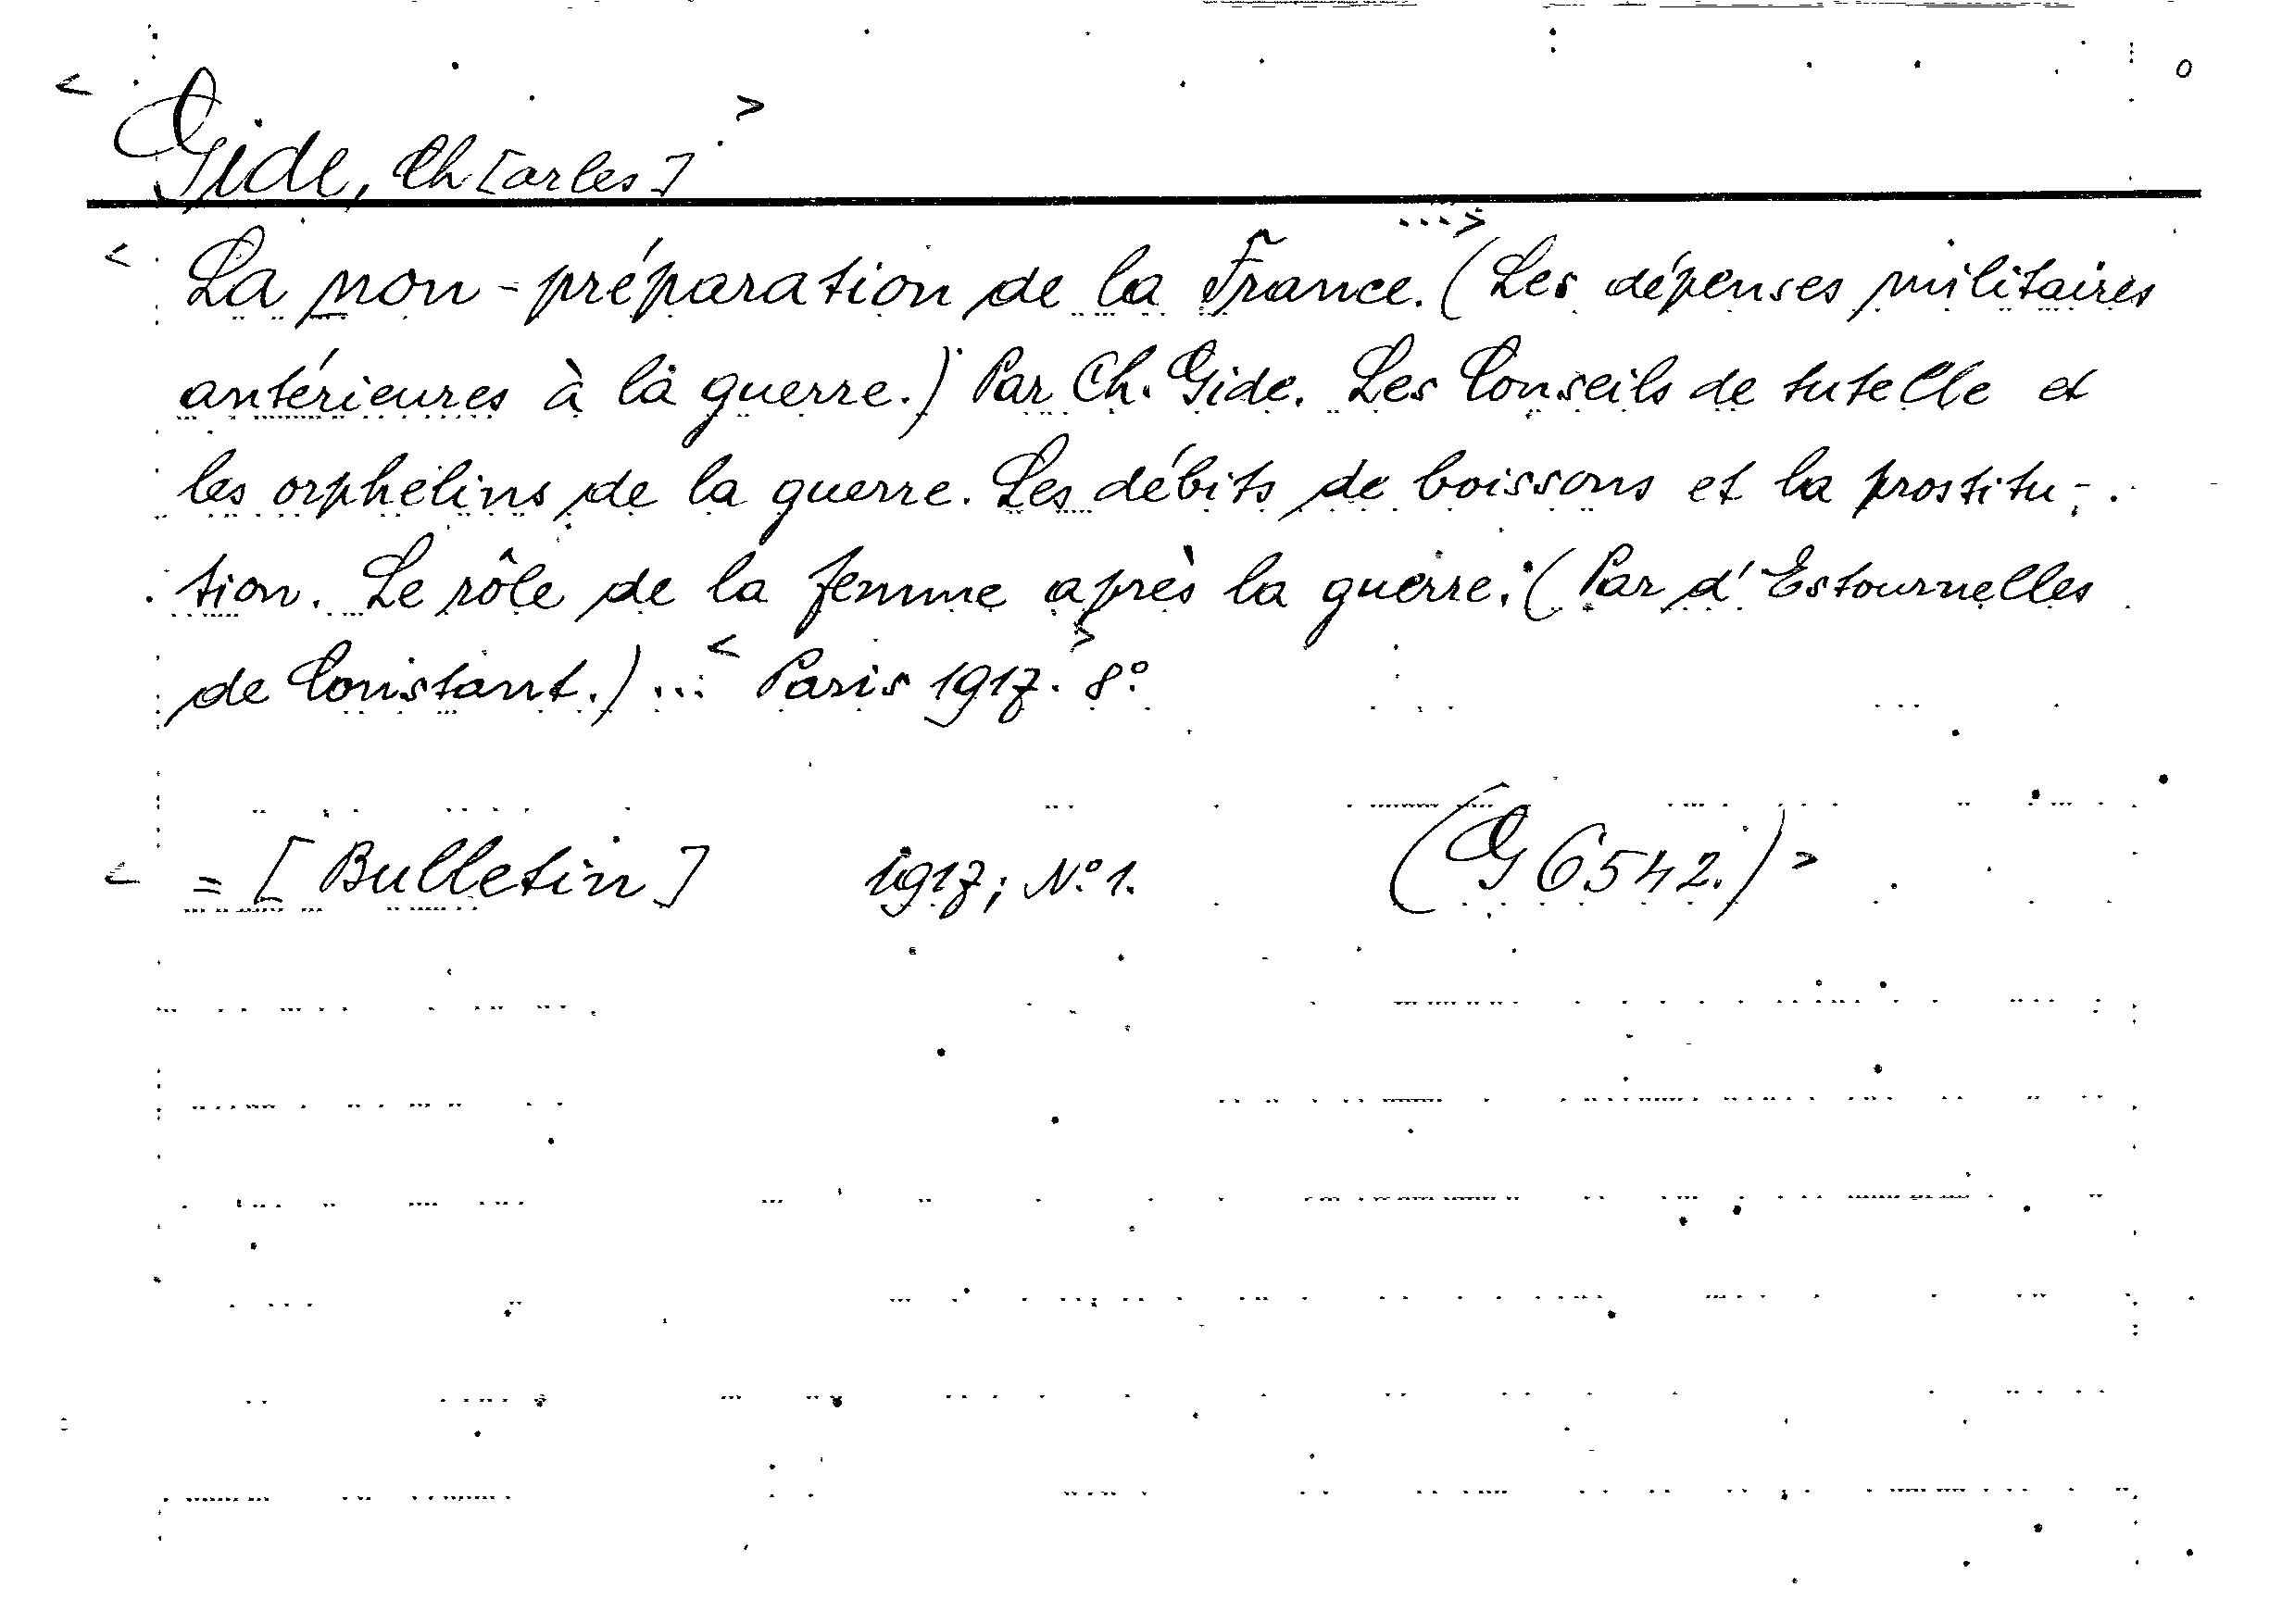 < Gide, Ch[arles] >
< La non-préparation de la France. ...> (Les dépenses militaires
antérieures à la guerre.) Par Ch. Gide. Les Conseils de tutelle et
les orphelins de la guerre. Les débits de boissons et la prostitu-
tion. Le rôle de la femme après la guerre. (Par d'Estournelles
de Constant.) ... < Paris 1917. > 8°
< = [Bulletin] 1917; N° 1. (G 6542.) >